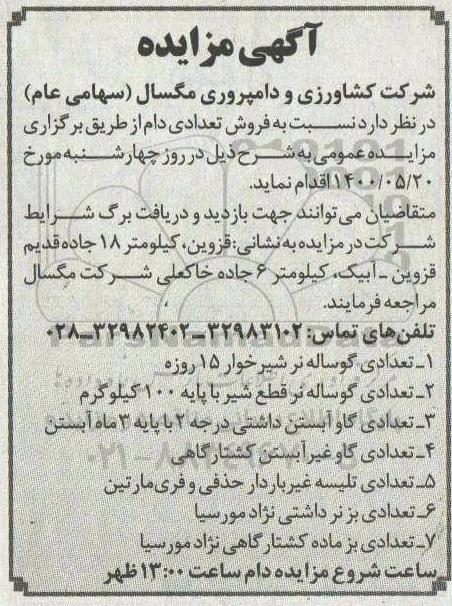 آگهی مزایده
شرکت کشاورزی و دامپروری مگسال (سهامی عام)
در نظر دارد نسبت به فروش تعدادی دام از طریق برگزاری
مزایده عمومی به شرح ذیل در روز چهارشنبه مورخ
۱۴۰۰/۰۵/۲۰ اقدام نماید.
متقاضیان می‌توانند جهت بازدید و دریافت برگ شرایط
شرکت در مزایده به نشانی: قزوین، کیلومتر ۱۸ جاده قدیم
قزوین ـ آبیک، کیلومتر ۶ جاده خاکعلی شرکت مگسال
مراجعه فرمایند.
تلفن‌های تماس: ۳۲۹۸۳۱۰۲ـ۳۲۹۸۲۴۰۲ـ۰۲۸
۱ـ تعدادی گوساله نر شیرخوار ۱۵ روزه
۲ـ تعدادی گوساله نر قطع شیر با پایه ۱۰۰ کیلوگرم
۳ـ تعدادی گاو آبستن داشتی درجه ۲ با پایه ۳ ماه آبستن
۴ـ تعدادی گاو غیرآبستن کشتارگاهی
۵ـ تعدادی تلیسه غیرباردار حذفی و فری‌مارتین
۶ـ تعدادی بز نر داشتی نژاد مورسیا
۷ـ تعدادی بز ماده کشتارگاهی نژاد مورسیا
ساعت شروع مزایده دام ساعت ۱۳:۰۰ ظهر